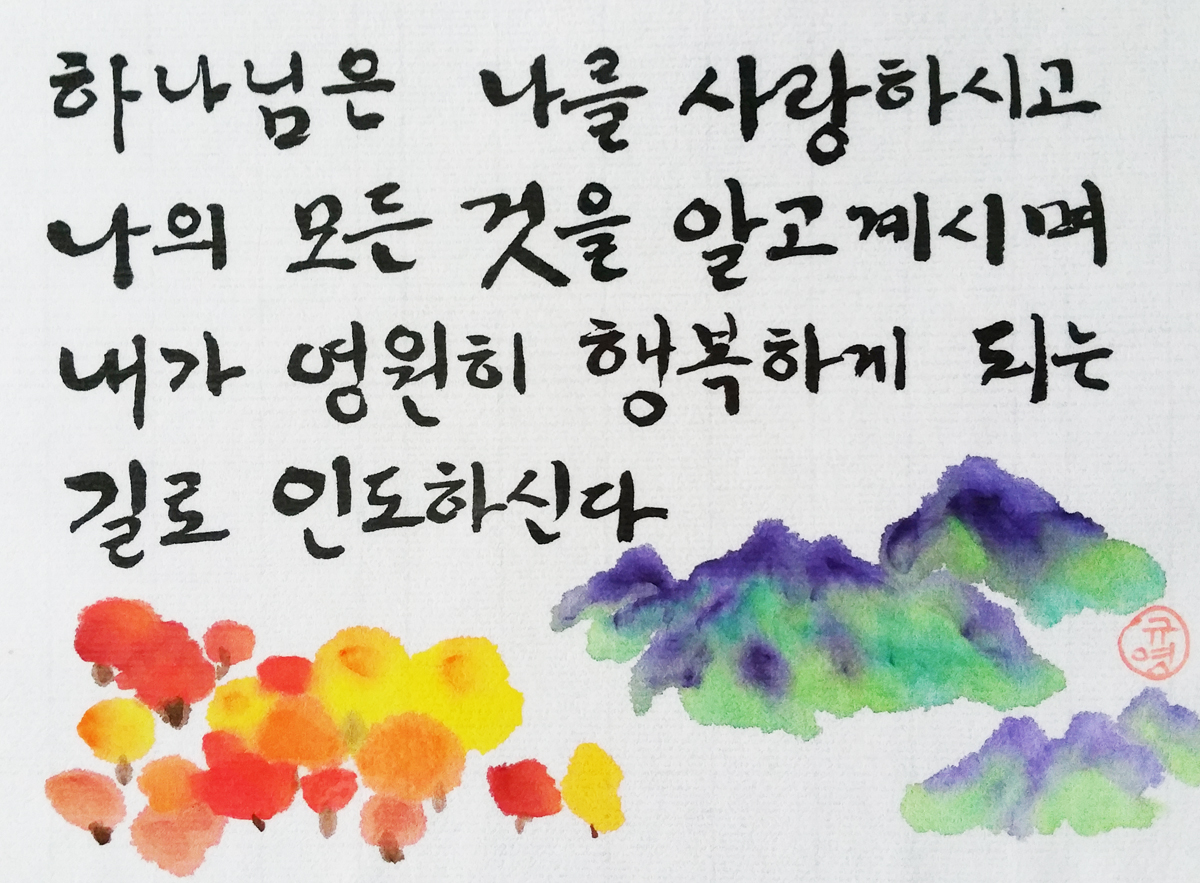 하나님은 나를 사랑하시고
나의 모든 것을 알고계시며
내가 영원히 행복하게 되는
길로 인도하신다